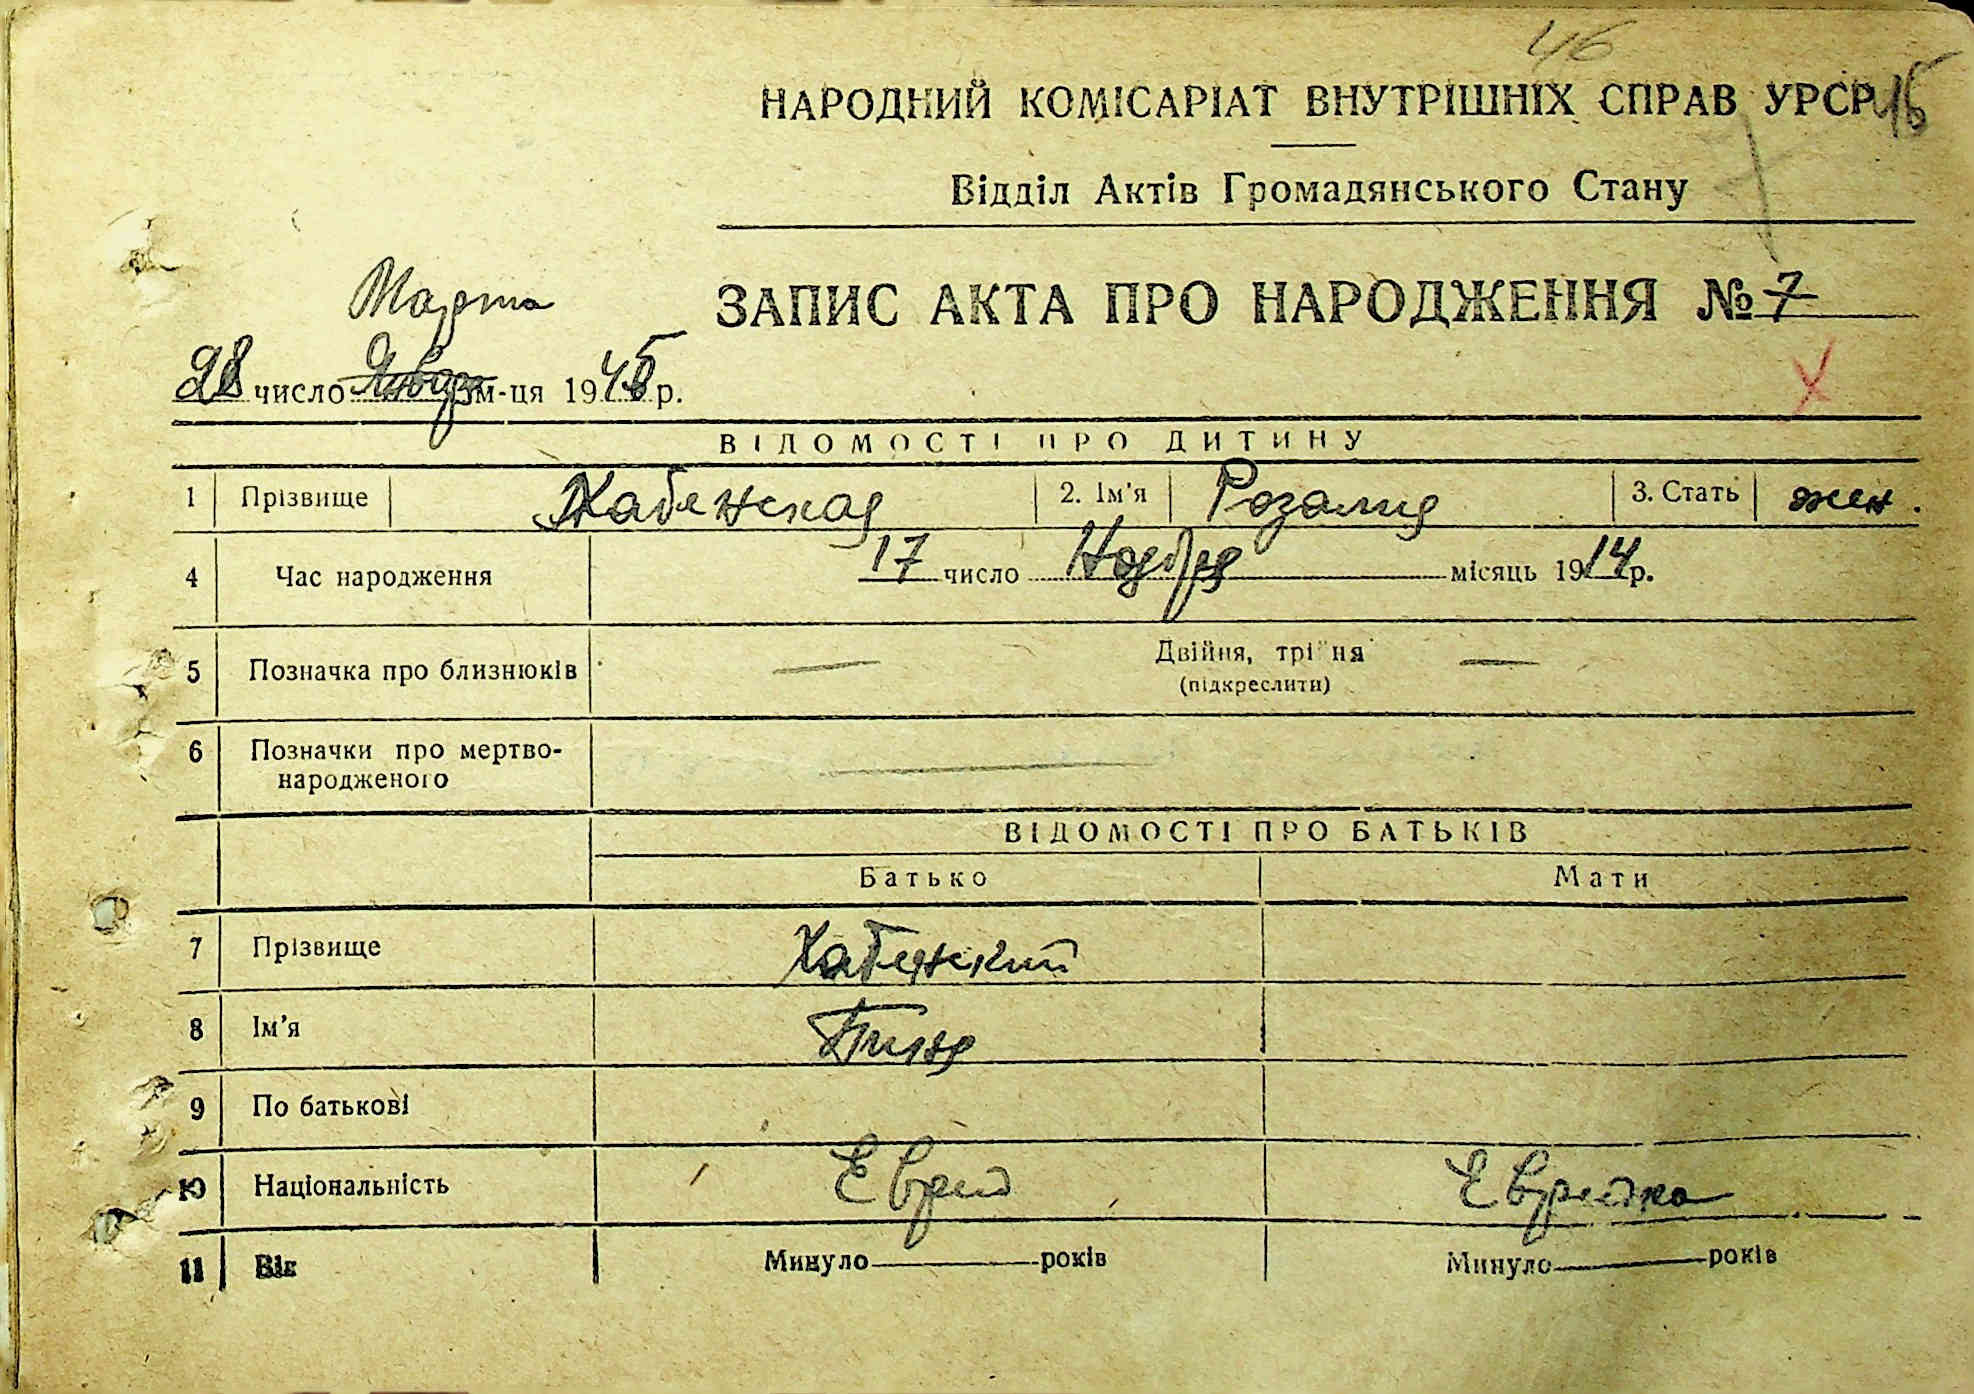 46
НАРОДНИЙ КОМІСАРІАТ ВНУТРІШНІХ СПРАВ УРСР
Відділ Актів Громадянського Стану
Марта
ЗАПИС АКТА ПРО НАРОДЖЕННЯ № 7
28 число Января м-ця 1945 р.
ВІДОМОСТІ ПРО ДИТИНУ
1 Прізвище Хабенская 2. Ім'я Розалия 3. Стать жен.
4 Час народження 17 число Ноября місяць 1914 р.
5 Позначка про близнюків Двійня, трійня
(підкреслити)
6 Позначки про мертво-
народженого
ВІДОМОСТІ ПРО БАТЬКІВ
Батько Мати
7 Прізвище Хабенский
8 Ім'я
9 По батькові
10 Національність Еврей Еврейка
11 Вік Минуло років Минуло років